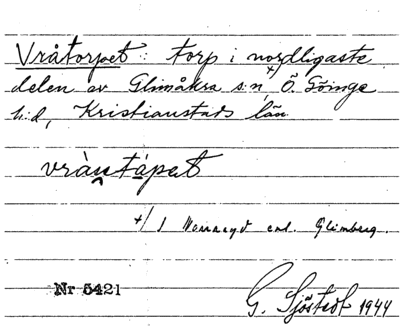 Vråtorpet: torp i nordligaste
delen av Glimåkra s:n, Ö. Göinge
h:d, Kristianstads län
vrån̯tápet
x/ I enl. Glimberg.
Nr 5421
G. Sjöstedt 1944